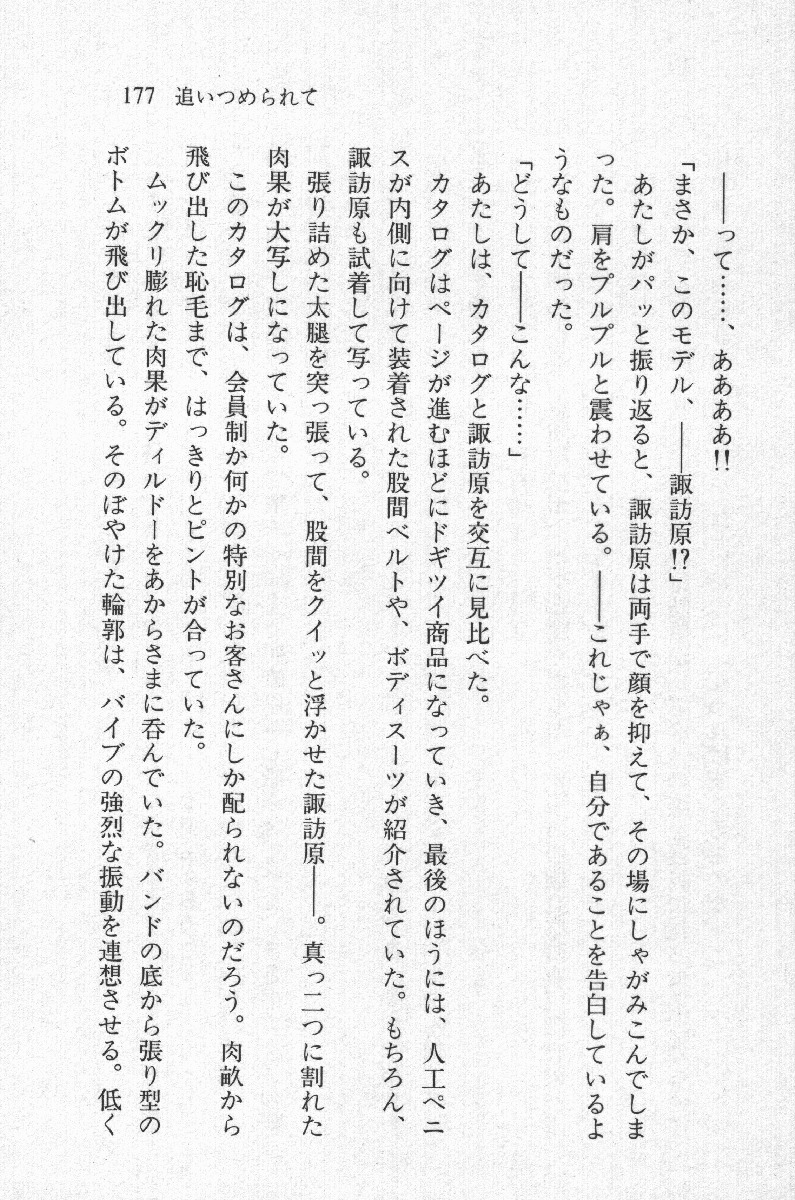 177 追いつめられて
――って……、ああああ!!
「まさか、このモデル、――諏訪原!?」
あたしがパッと振り返ると、諏訪原は両手で顔を抑えて、その場にしゃがみこんでしま
った。肩をプルプルと震わせている。――これじゃぁ、自分であることを告白しているよ
うなものだった。
「どうして――こんな……」
あたしは、カタログと諏訪原を交互に見比べた。
カタログはページが進むほどにドギツイ商品になっていき、最後のほうには、人工ペニ
スが内側に向けて装着された股間ベルトや、ボディスーツが紹介されていた。もちろん、
諏訪原も試着して写っている。
張り詰めた太腿を突っ張って、股間をクイッと浮かせた諏訪原――。真っ二つに割れた
肉果が大写しになっていた。
このカタログは、会員制か何かの特別なお客さんにしか配られないのだろう。肉畝から
飛び出した恥毛まで、はっきりとピントが合っていた。
ムックリ膨れた肉果がディルドーをあからさまに呑んでいた。バンドの底から張り型の
ボトムが飛び出している。そのぼやけた輪郭は、バイブの強烈な振動を連想させる。低く